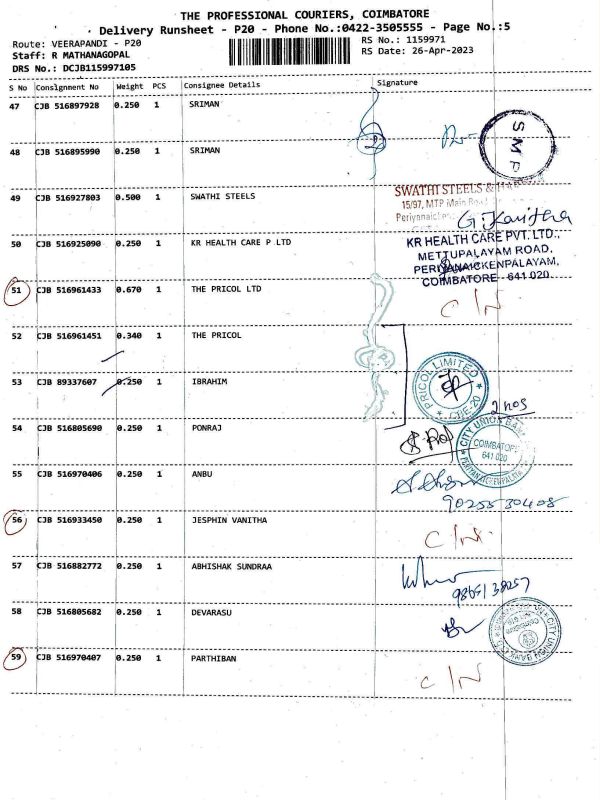 THE PROFESSIONAL COURIERS, COIMBATORE
Delivery Runsheet - P20 - Phone No.:0422-3505555 - Page No.:5
Route: VEERAPANDI - P20
RS No.: 1159971
Staff: R MATHANAGOPAL
RS Date: 26-Apr-2023
DRS No.: DCJB115997105
S No Consignment No Weight PCS Consignee Details Signature
47 CJB 516897928 0.250 1 SRIMAN
SMP
48 CJB 516895990 0.250 1 SRIMAN
2
49 CJB 516927803 0.500 1 SWATHI STEELS
SWATHI STEELS &
15/97, MTP Main Road
G. Kavitha
50 CJB 516925090 0.250 1 KR HEALTH CARE P LTD
KR HEALTH CARE PVT. LTD.,
METTUPALAYAM ROAD,
PERIYANAICKENPALAYAM,
COIMBATORE - 641 020
51 CJB 516961433 0.670 1 THE PRICOL LTD
C/N
52 CJB 516961451 0.340 1 THE PRICOL
PRICOL LIMITED
* CBE-20 *
53 CJB 89337607 0.250 1 IBRAHIM
2 nos
54 CJB 516805690 0.250 1 PONRAJ
* CITY UNION BANK
COIMBATORE
641 020
55 CJB 516970406 0.250 1 ANBU
90255 30408
56 CJB 516933450 0.250 1 JESPHIN VANITHA
C/N
57 CJB 516882772 0.250 1 ABHISHAK SUNDRAA
9865138257
58 CJB 516805682 0.250 1 DEVARASU
CITY UNION BANK
59 CJB 516970407 0.250 1 PARTHIBAN
C/N